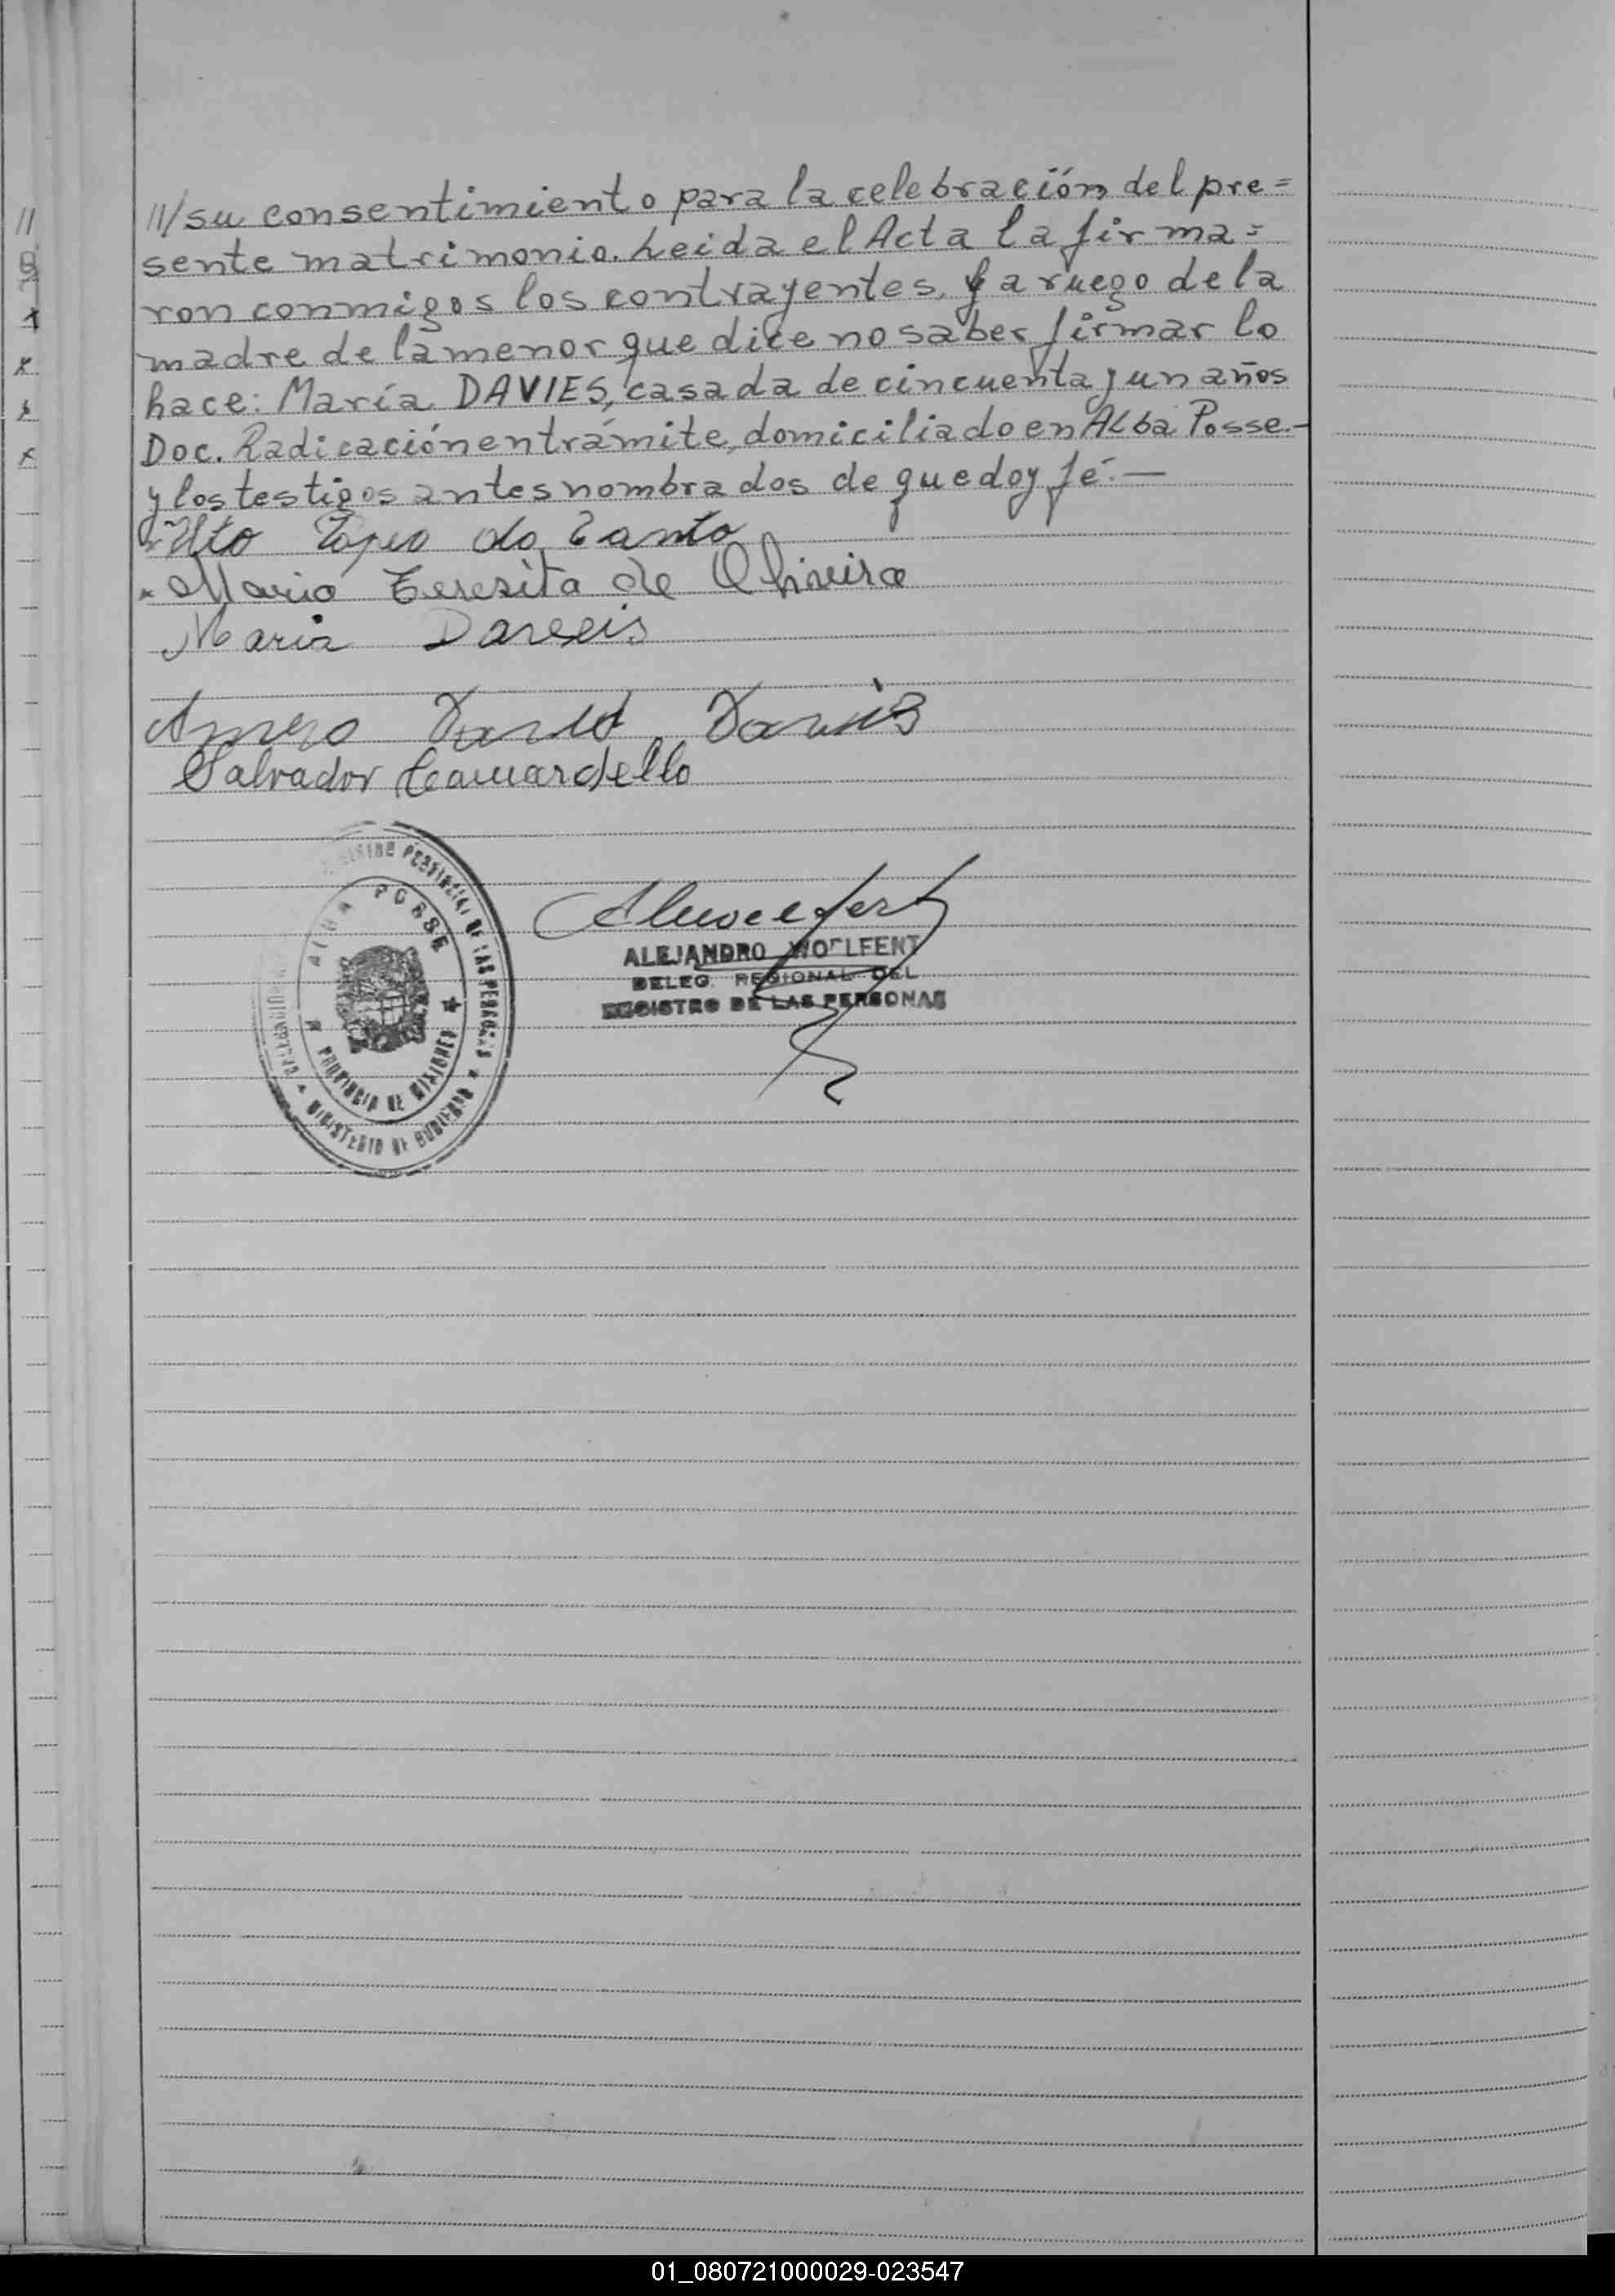 ///su consentimiento para la celebración del pre=
sente matrimonio. Leida el Acta la firma=
ron conmigos los contrayentes, y a ruego de la
madre de la menor que dice no saber firmar lo
hace: María DAVIES, casada de cincuenta y un años
Doc. Radicación en trámite, domiciliado en Alba Posse.-
y los testigos antes nombrados de que doy fé.—
do
Maria Teresita de Oliveira
Maria
Salvador Camardello
ALBA POSSE
PROVINCIA DE MISIONES
MINISTERIO DE GOBIERNO
ALEJANDRO WOELFERT
DELEG. REGIONAL DEL
REGISTRO DE LAS PERSONAS
01_080721000029-023547